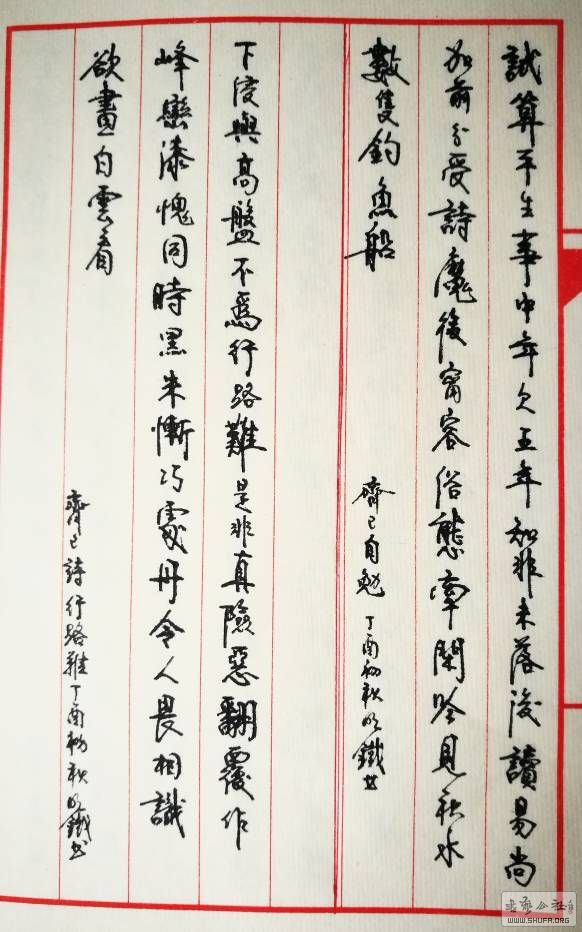 試算平生事中年欠五年知非未落後讀易尚
加前分受詩魔後甯容俗態牽閑吟見秋水
數隻釣魚船
齊己自勉 丁酉初秋 鐵書
下浸與高盤不為行路難是非真險惡翻覆作
峰巒漆愧同時黑朱慚巧處丹令人畏相識
欲畫白雲看
齊己詩行路難丁酉初秋 鐵書
书艺公社
WWW.SHUFA.ORG